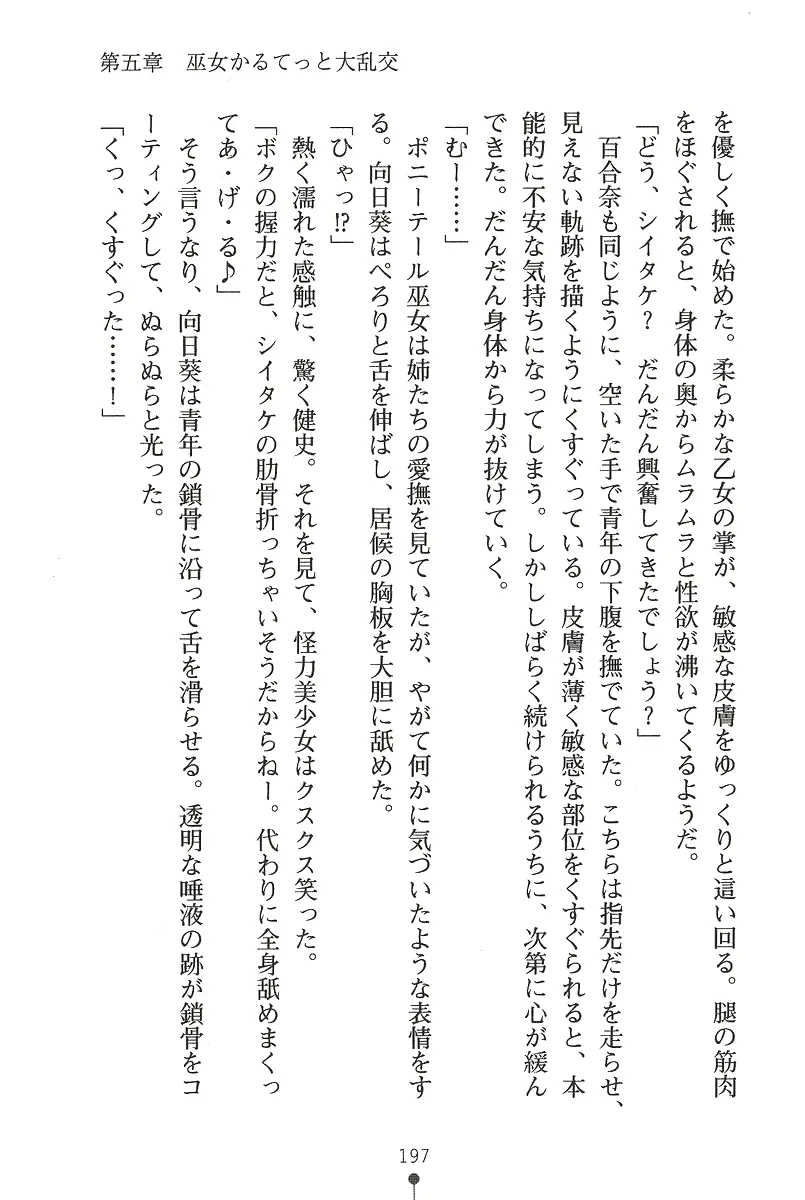 第五章　巫女かるてっと大乱交
を優しく撫で始めた。柔らかな乙女の掌が、敏感な皮膚をゆっくりと這い回る。腿の筋肉
をほぐされると、身体の奥からムラムラと性欲が沸いてくるようだ。
「どう、シイタケ？　だんだん興奮してきたでしょう？」
百合奈も同じように、空いた手で青年の下腹を撫でていた。こちらは指先だけを走らせ、
見えない軌跡を描くようにくすぐっている。皮膚が薄く敏感な部位をくすぐられると、本
能的に不安な気持ちになってしまう。しかししばらく続けられるうちに、次第に心が緩ん
できた。だんだん身体から力が抜けていく。
「むー……」
ポニーテール巫女は姉たちの愛撫を見ていたが、やがて何かに気づいたような表情をす
る。向日葵はぺろりと舌を伸ばし、居候の胸板を大胆に舐めた。
「ひゃっ!?」
熱く濡れた感触に、驚く健史。それを見て、怪力美少女はクスクス笑った。
「ボクの握力だと、シイタケの肋骨折っちゃいそうだからねー。代わりに全身舐めまくっ
てあ・げ・る♪」
そう言うなり、向日葵は青年の鎖骨に沿って舌を滑らせる。透明な唾液の跡が鎖骨をコ
ーティングして、ぬらぬらと光った。
「くっ、くすぐった……！」
197